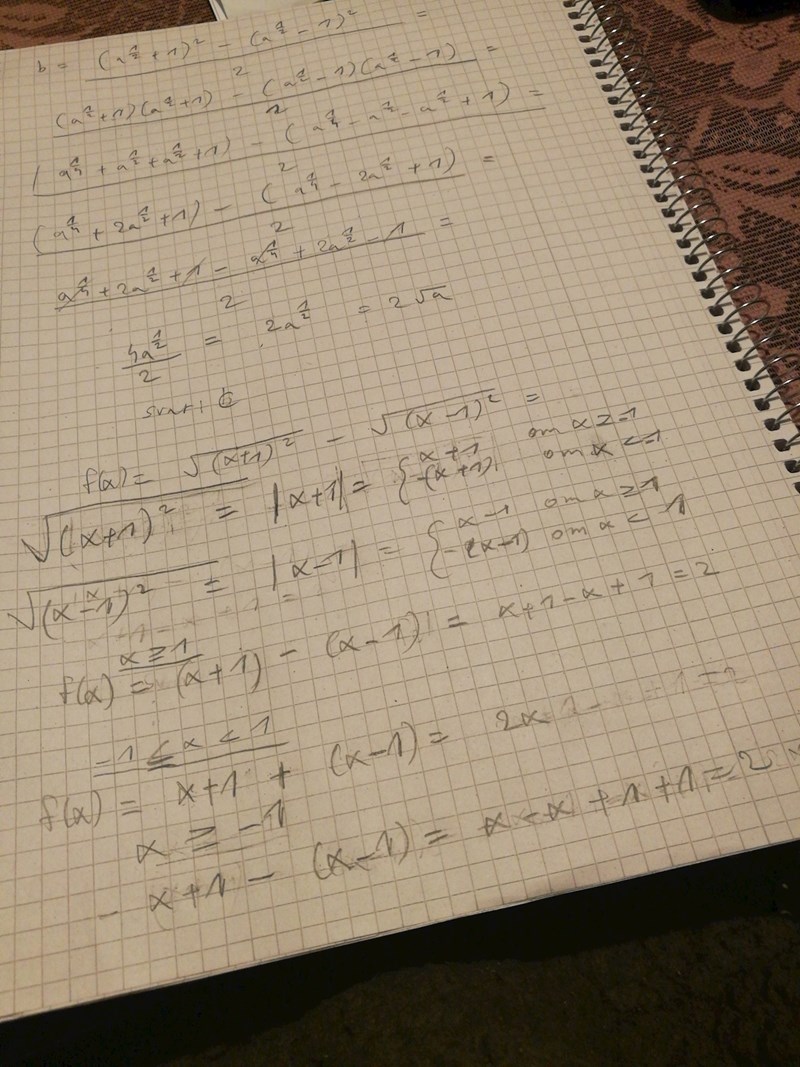 b = ((a^½ + 1)² - (a^½ - 1)²)/2 =
((a^½ + 1)(a^½ + 1) - (a^½ - 1)(a^½ - 1))/2 =
((a^¼ + a^½ + a^½ + 1) - (a^¼ - a^½ - a^½ + 1))/2 =
((a^¼ + 2a^½ + 1) - (a^¼ - 2a^½ + 1))/2 =
(a^¼ + 2a^½ + 1 - a^¼ + 2a^½ - 1)/2 =
4a^½/2 = 2a^½ = 2√a
svar:
f(x) = √(x+1)² - √(x-1)² =
√(x+1)² = |x+1| = { x+1 om x ≥ -1
-(x+1) om x < -1
√(x-1)² = |x-1| = { x-1 om x ≥ 1
-(x-1) om x < 1
x ≥ 1
f(x) = (x+1) - (x-1) = x+1-x+1 = 2
-1 ≤ x < 1
f(x) = x+1 + (x-1) = 2x
x ≥ -1
- x+1 - (x-1) = x - x + 1 + 1 = 2